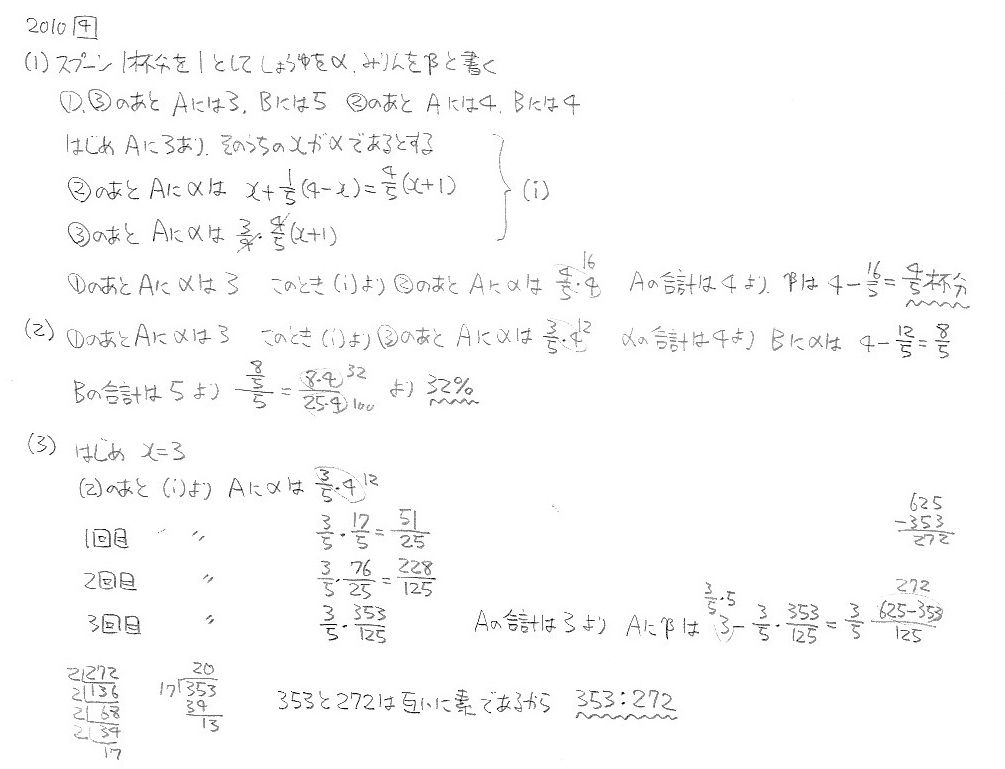 2010 4
(1) スプーン1杯分を1としてしょうゆをα、みりんをβと書く
①、③のあと Aには3、Bには5 ②のあと Aには4、Bには4
はじめ Aに3あり、そのうちのxがαであるとする
②のあと Aにαは x+1/5(4-x)=4/5(x+1)
③のあと Aにαは 3/4・4/5(x+1)
(i)
①のあとAにαは3 このとき(i)より②のあと Aにαは 4/5・4 16 Aの合計は4より、βは 4-16/5=4/5杯分
(2) ①のあとAにαは3 このとき(i)より③のあと Aにαは 3/5・4 12 αの合計は4より Bにαは 4-12/5=8/5
Bの合計は5より 8/5/5=8・4/25・4 32 100 より 32%
(3) はじめ x=3
(2)のあと (i)より Aにαは 3/5・4 12
1回目 〃 3/5・17/5=51/25
2回目 〃 3/5・76/25=228/125
3回目 〃 3/5・353/125 Aの合計は3より Aにβは 3-3/5・353/125=3/5・625-353/125
3/5・5
272
625
-353
272
2)272
2)136
2)68
2)34
17
20
17)353
34
13
353と272は互いに素であるから 353:272